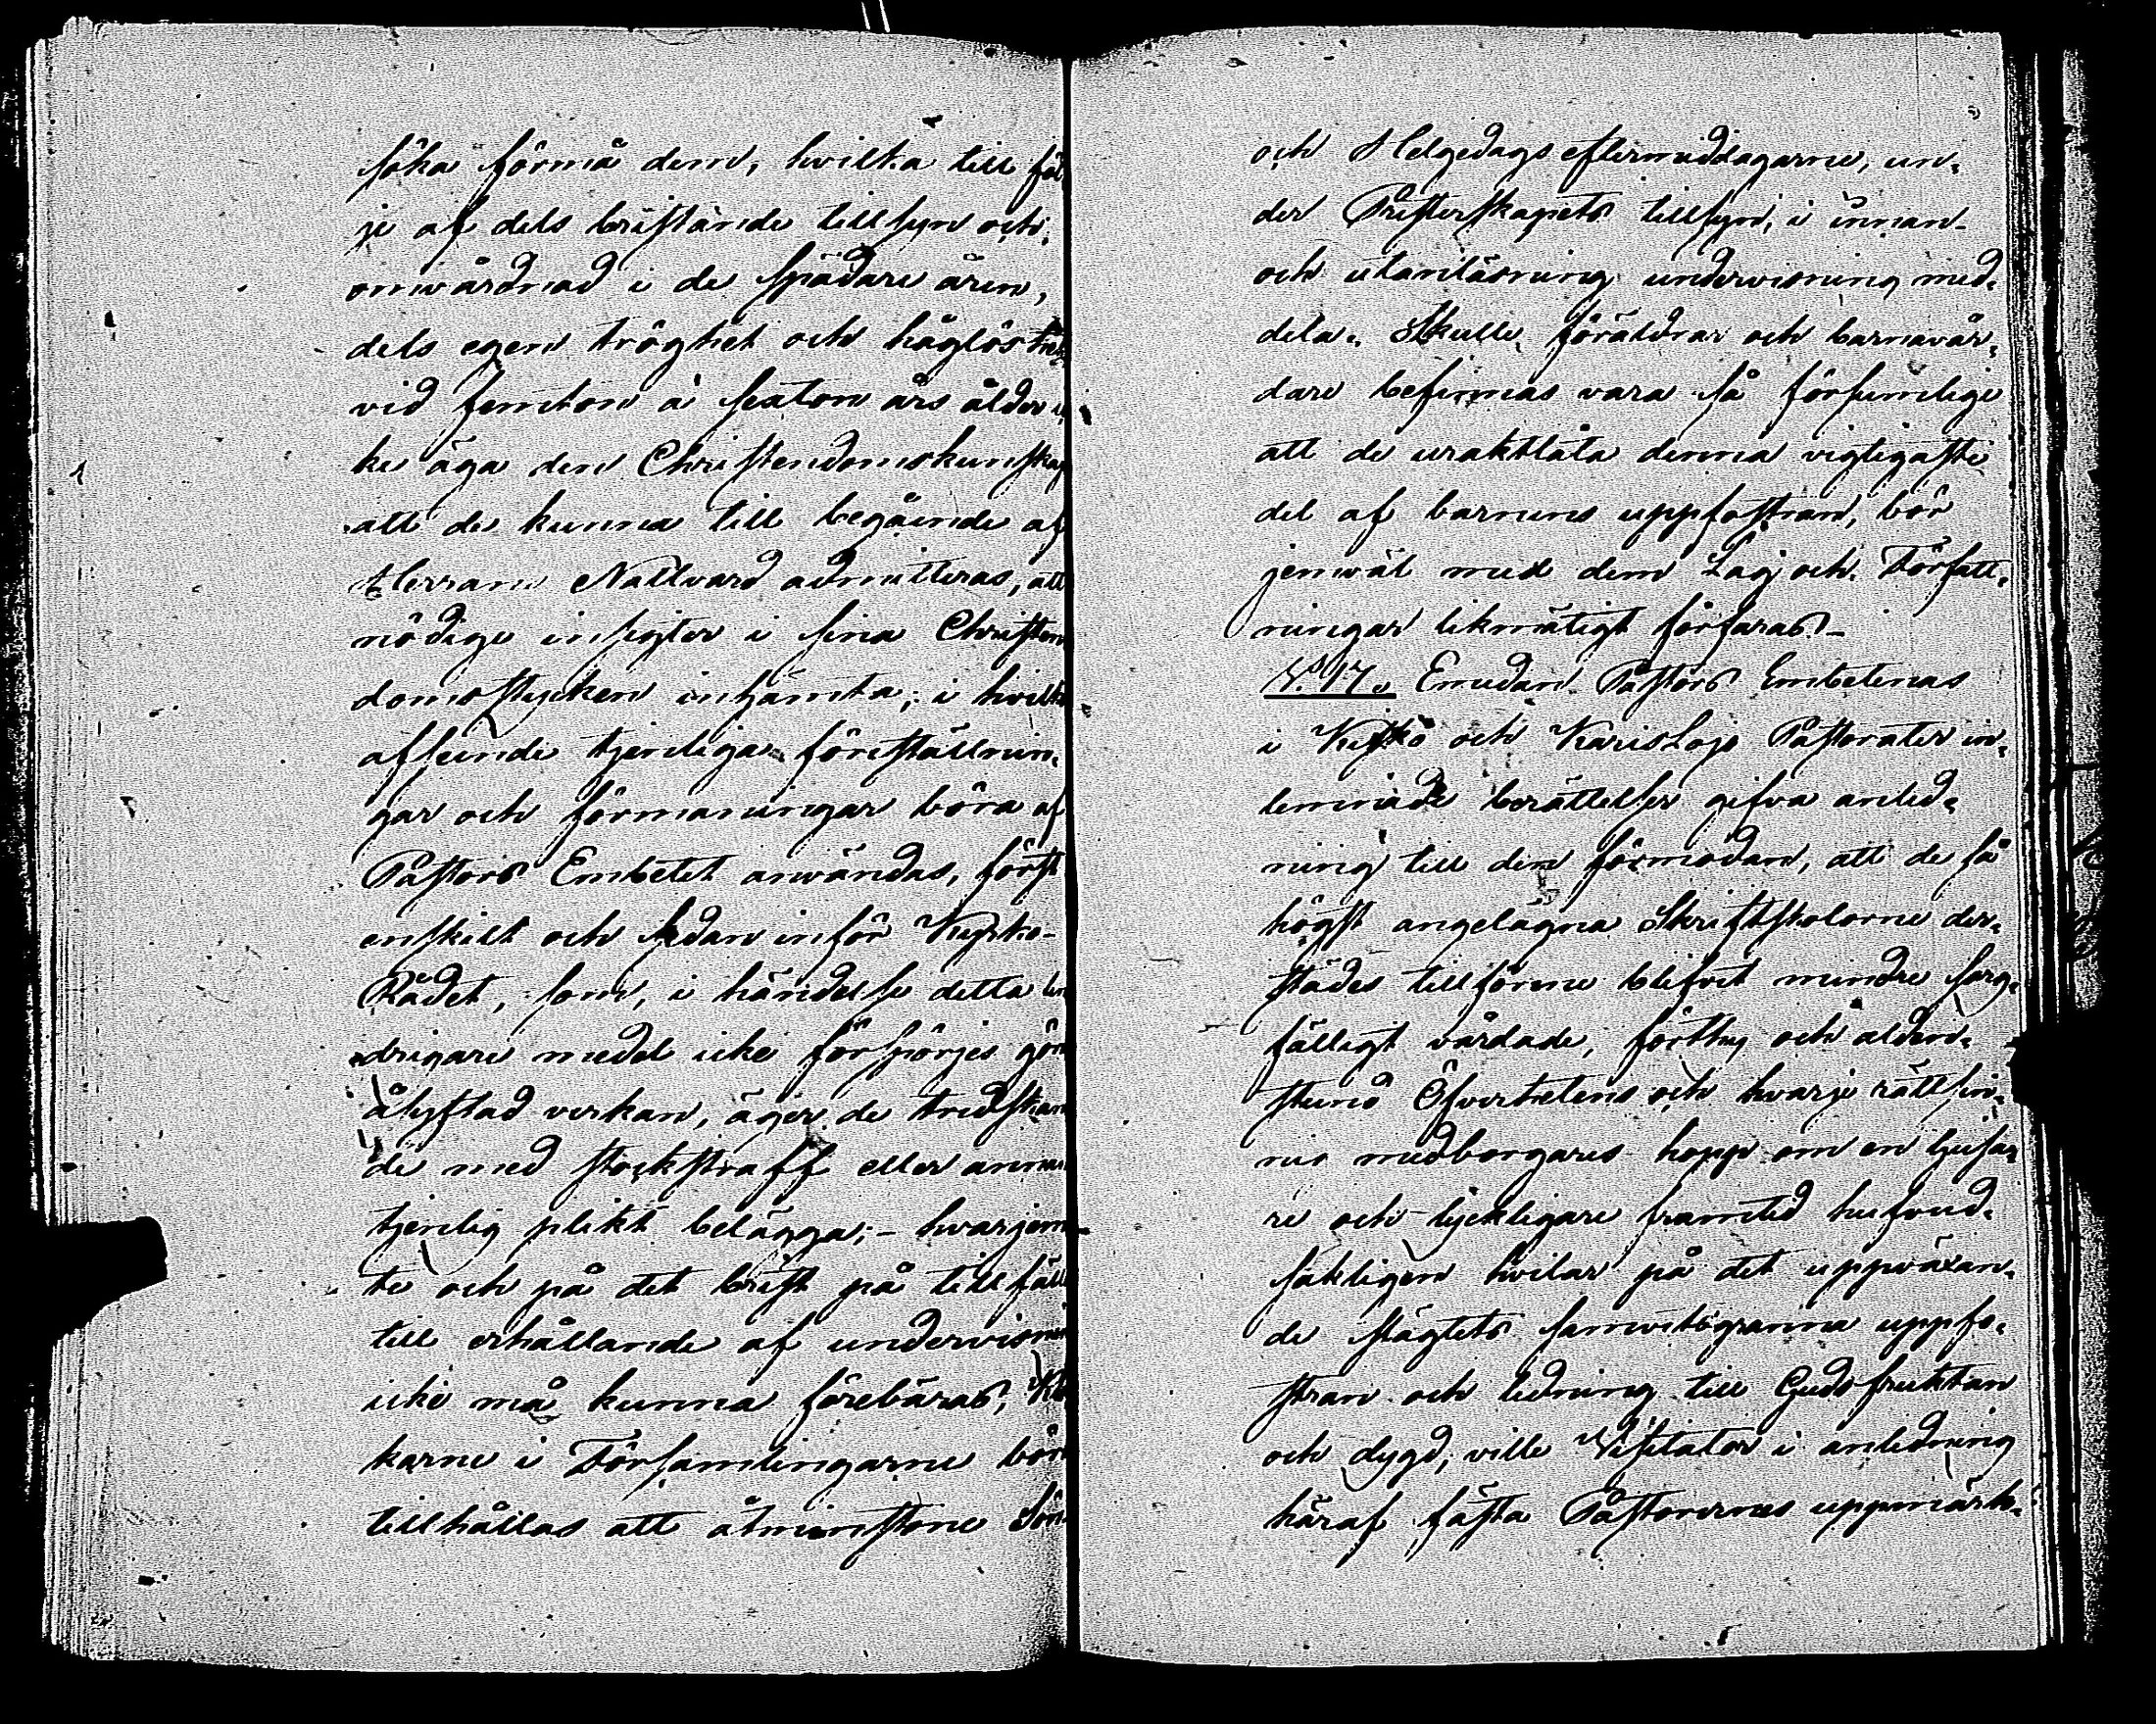 söka förmå dem, hvilka till föl
je af dels bristande tillsyn och
omvårdnad i de spädare åren,
dels egen tröghet och håglöshet
vid femton à sexton års ålder ic
ke äga den Christendomskunskap
att de kunna till begående af
Herrans Nattvard admitteras, att
nödige insigter i sina Christen
domsstycken inhämta; i hvilket
afseende tjenliga föreställnin-
gar och förmaningar böra af
Pastors Embetet användas, först
enskilt och sedan inför Kyrko-
Rådet, som, i händelse detta lin
drigare medel icke förspörjes göra
åsyftad verkan, äger de tredskan
de med stockstraff eller annan
tjenlig plikt belägga; - hvarjem
te och på det brist på tillfälle
till erhållande af undervisning
icke må kunna förebäras, Kloc
karne i Församlingarne böra
tillhållas att åtminstone Sön-
och Helgedags eftermiddagarne, un-
der Presterskapets tillsyn, i innan-
och utanläsning undervisning med-
dela. Skulle föräldrar och barnavår-
dare befinnas vara så försumlige
att de uraktlåta denna vigtigaste
del af barnens uppfostran, bör
jemväl med dem Lag och Författ-
ningar likmätigt förfaras -
§. 17. Emedan Pastors Embetenas
i Kisko och Karislojo Pastorater in-
lemnade berättelser gifva anled-
ning till den förmodan, att de så
högst angelägna Skriftskolorne der-
städes tillförene blifvit mindre sorg-
fälligt vårdade, förthy och alden-
stund Öfverhetens och hvarje rättsin-
nig medborgares hopp om en ljusa-
re och lyckligare framtid hufvud-
sakligen hvilar på det uppväxan-
de slägtets samvetsgranna uppfo-
stran och ledning till Gudsfruktan
och dygd, ville Visitator i anledning
häraf fästa Pastorernes uppmärk-